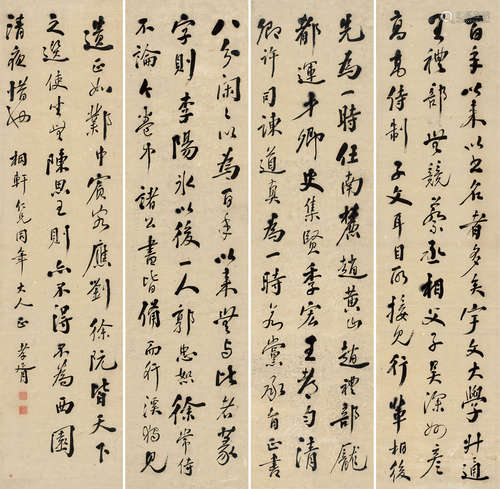 百年以來以書名者多宇文大學升通
王禮部無競蔡丞相父子吳深州彥
高高待制子文耳目所接見行輩相後
先為一時任南麓趙黃山趙禮部龎
都運才卿史集賢季宏王都勾清
卿許司諫道真為一時若黨承旨正書
八分閑閑以為百年以來無與比者篆
字則李陽冰以後一人郭忠恕徐常侍
不論今卷中諸公書皆備而竹溪獨見
遺正如鄴中賓客應劉徐阮皆天下
之選使坐無陳思王則亦不得不為西園
清夜惜也 桐軒仁兄同年大人正 孝胥